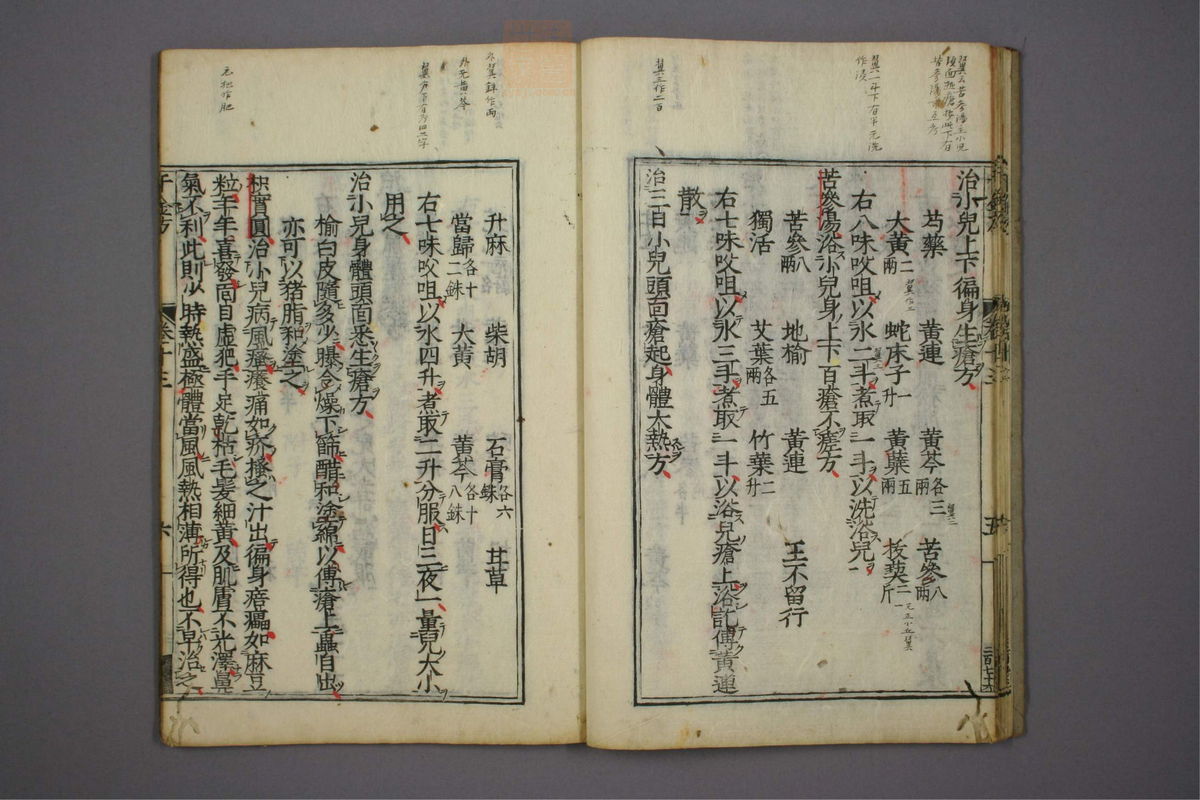 治小兒上下徧身生瘡方
芍藥 黃連 黃芩各三兩 苦參八兩
大黃二兩 蛇床子一升 黃蘗五兩 菝葜一斤
右八味㕮咀以水二斗煮取一斗以洗浴兒
苦參湯浴小兒身上下百瘡不瘥方
苦參八兩 地榆 黃連 王不留行
獨活 艾葉各五兩 竹葉二升
右七味㕮咀以水三斗煮取一斗以浴兒瘡上浴訖傅黃連
散
治三百小兒頭面瘡起身體大熱方
升麻 柴胡 石膏各六銖 甘草
當歸各十二銖 大黃 黃芩各十八銖
右七味㕮咀以水四升煮取二升分服日三夜一量兒大小
用之
治小兒身體頭面悉生瘡方
榆白皮隨多少曝令燥下篩醋和塗綿以傅瘡上蟲自出
亦可以猪脂和塗之
枳實圓治小兒病風瘙癢痛如疥搔之汁出徧身㾦㿔如麻豆
粒年年喜發面目虛肥手足乾枯毛髮細黃及肌膚不光澤鼻
氣不利此則少時熱盛極體當風風熱相薄所得也不早治之
千金方 卷十三 六